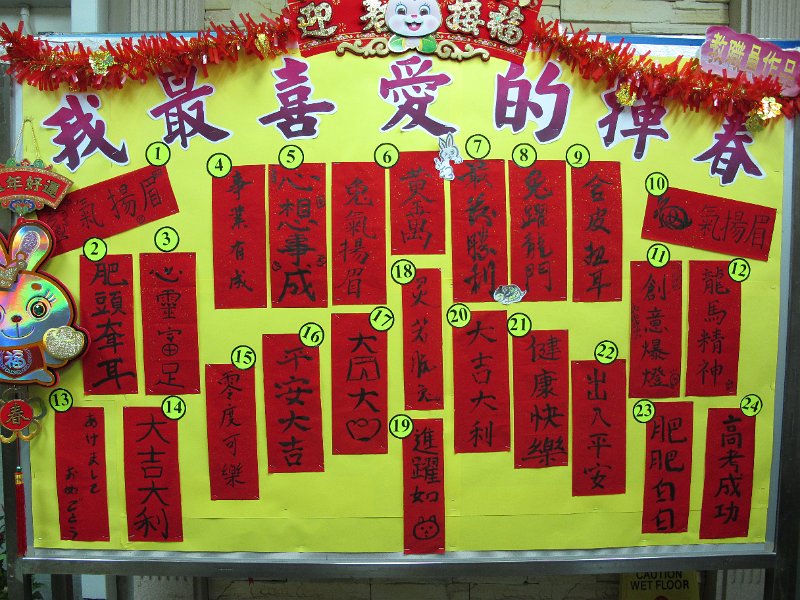 迎春接福
教職員作品
我最喜愛的揮春
年好運
1
氣揚眉
2
肥頭奀耳
3
心靈富足
4
事業有成
5
心想事成
兔氣揚眉
6
萬
7
勝利
8
兔躍龍門
9
合皮扭耳
10
氣揚眉
11
創意爆燈
12
龍馬精神
13
あけまして
おめでとう
14
大吉大利
15
零度可樂
16
平安大吉
17
大
大
18
19
進躍如
20
大吉大利
21
健康快樂
22
出入平安
23
肥肥白白
24
高考成功
福
春
CAUTION
WET FLOOR